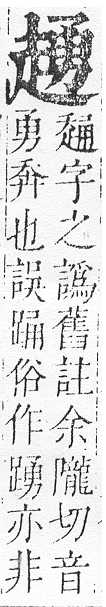 字之譌舊註余隴切音
勇奔也誤踊俗作踴亦非